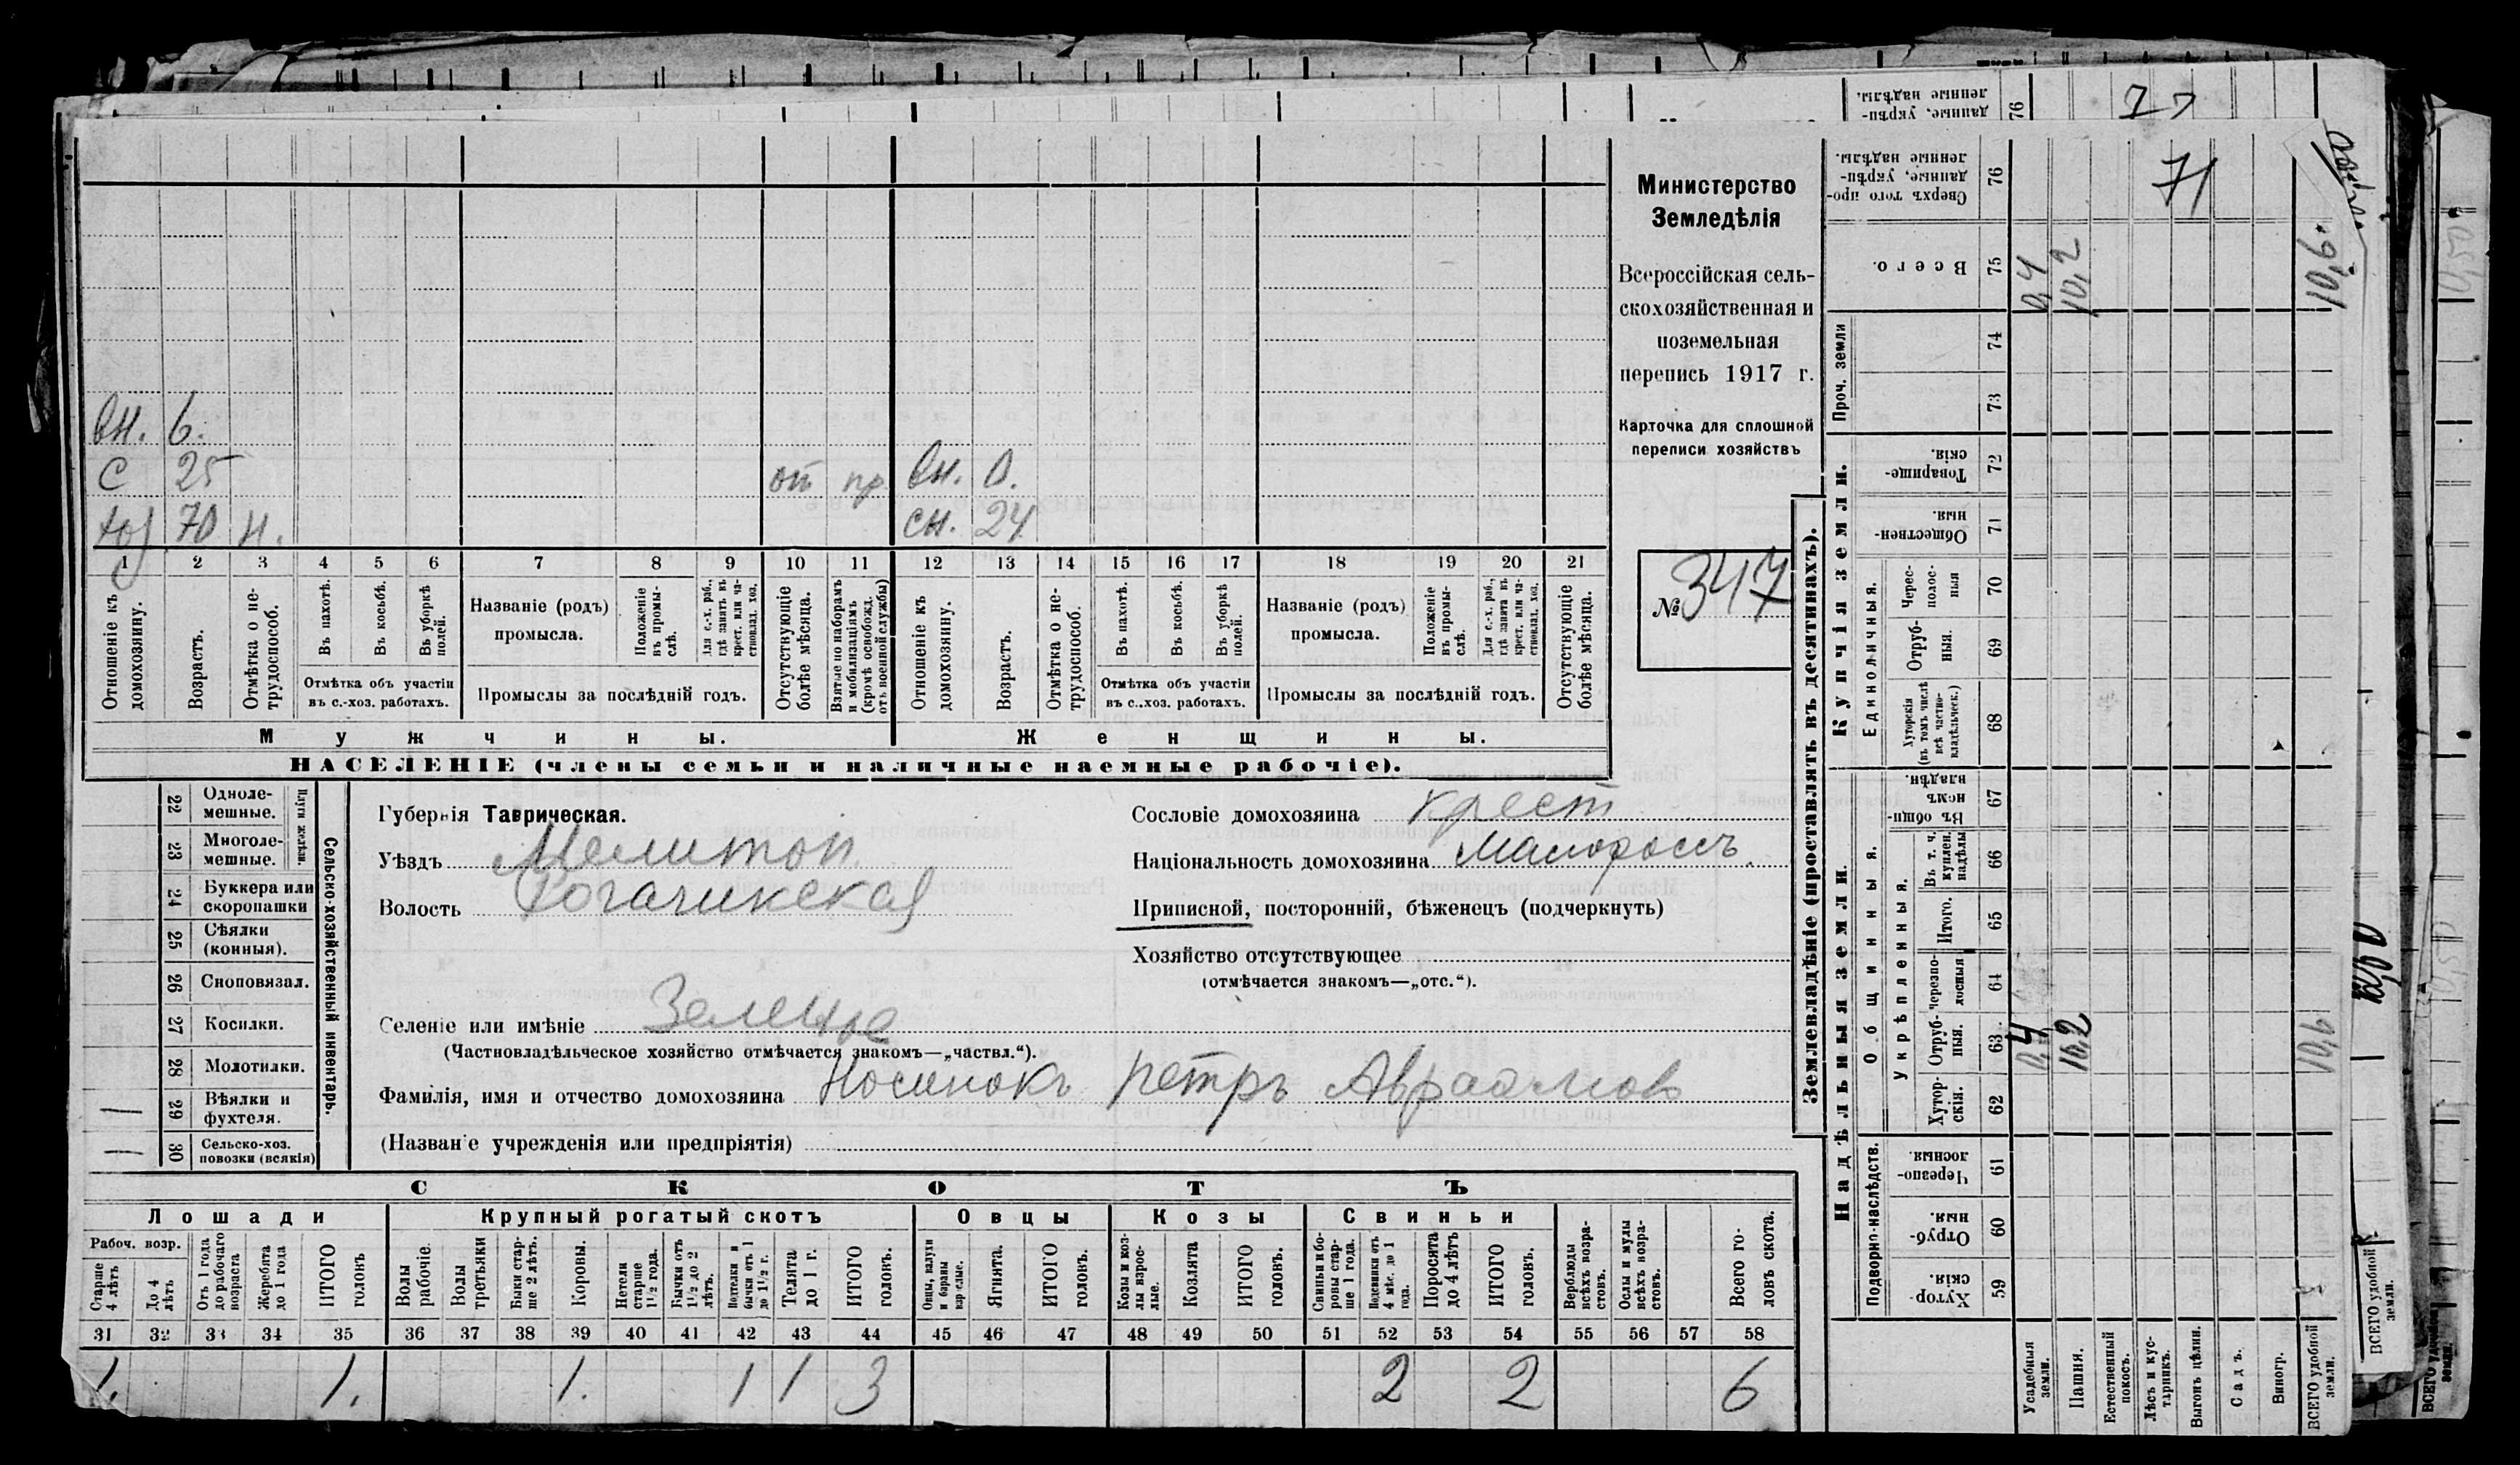 Министерство
Земледѣлія
Всероссійская сель-
скохозяйственная и
поземельная
перепись 1917 г.
Карточка для сплошной
переписи хозяйствъ
№ 347
вн. 6.
С 25 от пр вн. 0.
хоз 70 н. сн. 24
1 2 3 4 5 6 7 8 9 10 11 12 13 14 15 16 17 18 19 20 21
Отношеніе къ домохозяину.
Возрастъ.
Отмѣтка о не-трудоспособ.
Въ пахотѣ.
Въ косьбѣ.
Въ уборкѣ полей.
Отмѣтка объ участіи
въ с.-хоз. работахъ.
Названіе (родъ)
промысла.
Положеніе въ промы-слѣ.
Для с.-х. раб., гдѣ занятъ въ крест. или ча-стновлад. хоз.
Промыслы за послѣдній годъ.
Отсутствующіе болѣе мѣсяца.
Взятые по наборамъ и мобилизаціямъ (кромѣ освобожд. отъ военной службы)
Отношеніе къ домохозяину.
Возрастъ.
Отмѣтка о не-трудоспособ.
Въ пахотѣ.
Въ косьбѣ.
Въ уборкѣ полей.
Отмѣтка объ участіи
въ с.-хоз. работахъ.
Названіе (родъ)
промысла.
Положеніе въ промы-слѣ.
Для с.-х. раб., гдѣ занята въ крест. или ча-стновлад. хоз.
Промыслы за послѣдній годъ.
Отсутствующіе болѣе мѣсяца.
Мужчины. Женщины.
НАСЕЛЕНІЕ (члены семьи и наличные наемные рабочіе).
22 Одноле-мешные.
23 Многоле-мешные.
Плуги желѣзн.
24 Буккера или скоропашки
25 Сѣялки (конныя).
26 Сноповязал.
27 Косилки.
28 Молотилки.
— 29 Вѣялки и фухтеля.
— 30 Сельско-хоз. повозки (всякія)
Сельско-хозяйственный инвентарь.
Губернія Таврическая.
Уѣздъ Мелитоп
Волость Рогачикская
Сословіе домохозяина крест
Національность домохозяина Малороссъ.
Приписной, посторонній, бѣженецъ (подчеркнуть)
Хозяйство отсутствующее
(отмѣчается знакомъ—„отс.“).
Селеніе или имѣніе Зеленое
(Частновладѣльческое хозяйство отмѣчается знакомъ—„частвл.“).
Фамилія, имя и отчество домохозяина Носинокъ Петръ Авраамов
(Названіе учрежденія или предпріятія)
СКОТЪ
Лошади Крупный рогатый скотъ Овцы Козы Свиньи
Рабоч. возр.
Старше 4 лѣтъ
До 4 лѣтъ
Отъ 1 года до рабочаго возраста
Жеребята до 1 года
ИТОГО головъ
Волы рабочіе.
Волы третьяки
Быки стар-ше 2 лѣтъ.
Коровы.
Нетели старше 1½ года.
Бычки отъ 1½ до 2 лѣтъ.
Подтелки и бычки отъ 1 до 1½ г.
Телята до 1 г.
ИТОГО головъ.
Овцы, валухи и бараны взрослые.
Ягнята.
ИТОГО головъ.
Козы и коз-лы взрос-лые.
Козлята
ИТОГО головъ.
Свиньи и бо-ровы стар-ше 1 года.
Подсвинки отъ 4 мѣс. до 1 года.
Поросята до 4 лѣтъ
ИТОГО головъ.
Верблюды всѣхъ возра-стовъ.
Ослы и мулы всѣхъ возра-стовъ.
Всего го-ловъ скота.
31 32 33 34 35 36 37 38 39 40 41 42 43 44 45 46 47 48 49 50 51 52 53 54 55 56 57 58
1. 1. 1. 1 1 3 2 2 6
Землевладѣніе (проставлять въ десятинахъ).
Купчія земли.
Надѣльныя земли.
Сверхъ того про-данные, укрѣп-ленные надѣлы. 76
71
Всего. 75 0,4 10,2 10,6.
Проч. земли 74
73
Товарище-скія. 72
Обществен-ныя. 71
Единоличныя.
Черес-полос-ныя 70
Отруб-ныя. 69
Хуторскія (въ томъ числѣ всѣ частно-владѣльческ.) 68
Общинныя.
Въ общин-номъ владѣн. 67
Укрѣпленныя.
Въ т. ч. куплен. надѣлы 66
Итого. 65
Черезпо-лосныя 64
Отруб-ныя. 63 0,4 10,2 10,6
Хутор-скія. 62
Подворно-наслѣдств.
Черезпо-лосныя. 61
Отруб-ныя. 60
Хутор-скія. 59
Усадебныя земли.
Пашня.
Естественный покосъ.
Лѣсъ и кус-тарникъ.
Выгонъ цѣлин.
Садъ.
Виногр.
ВСЕГО удобной земли.
ВСЕГО удобной земли.
ВСЕГО удобной земли.
данные, укрѣп-ленные надѣлы. 76